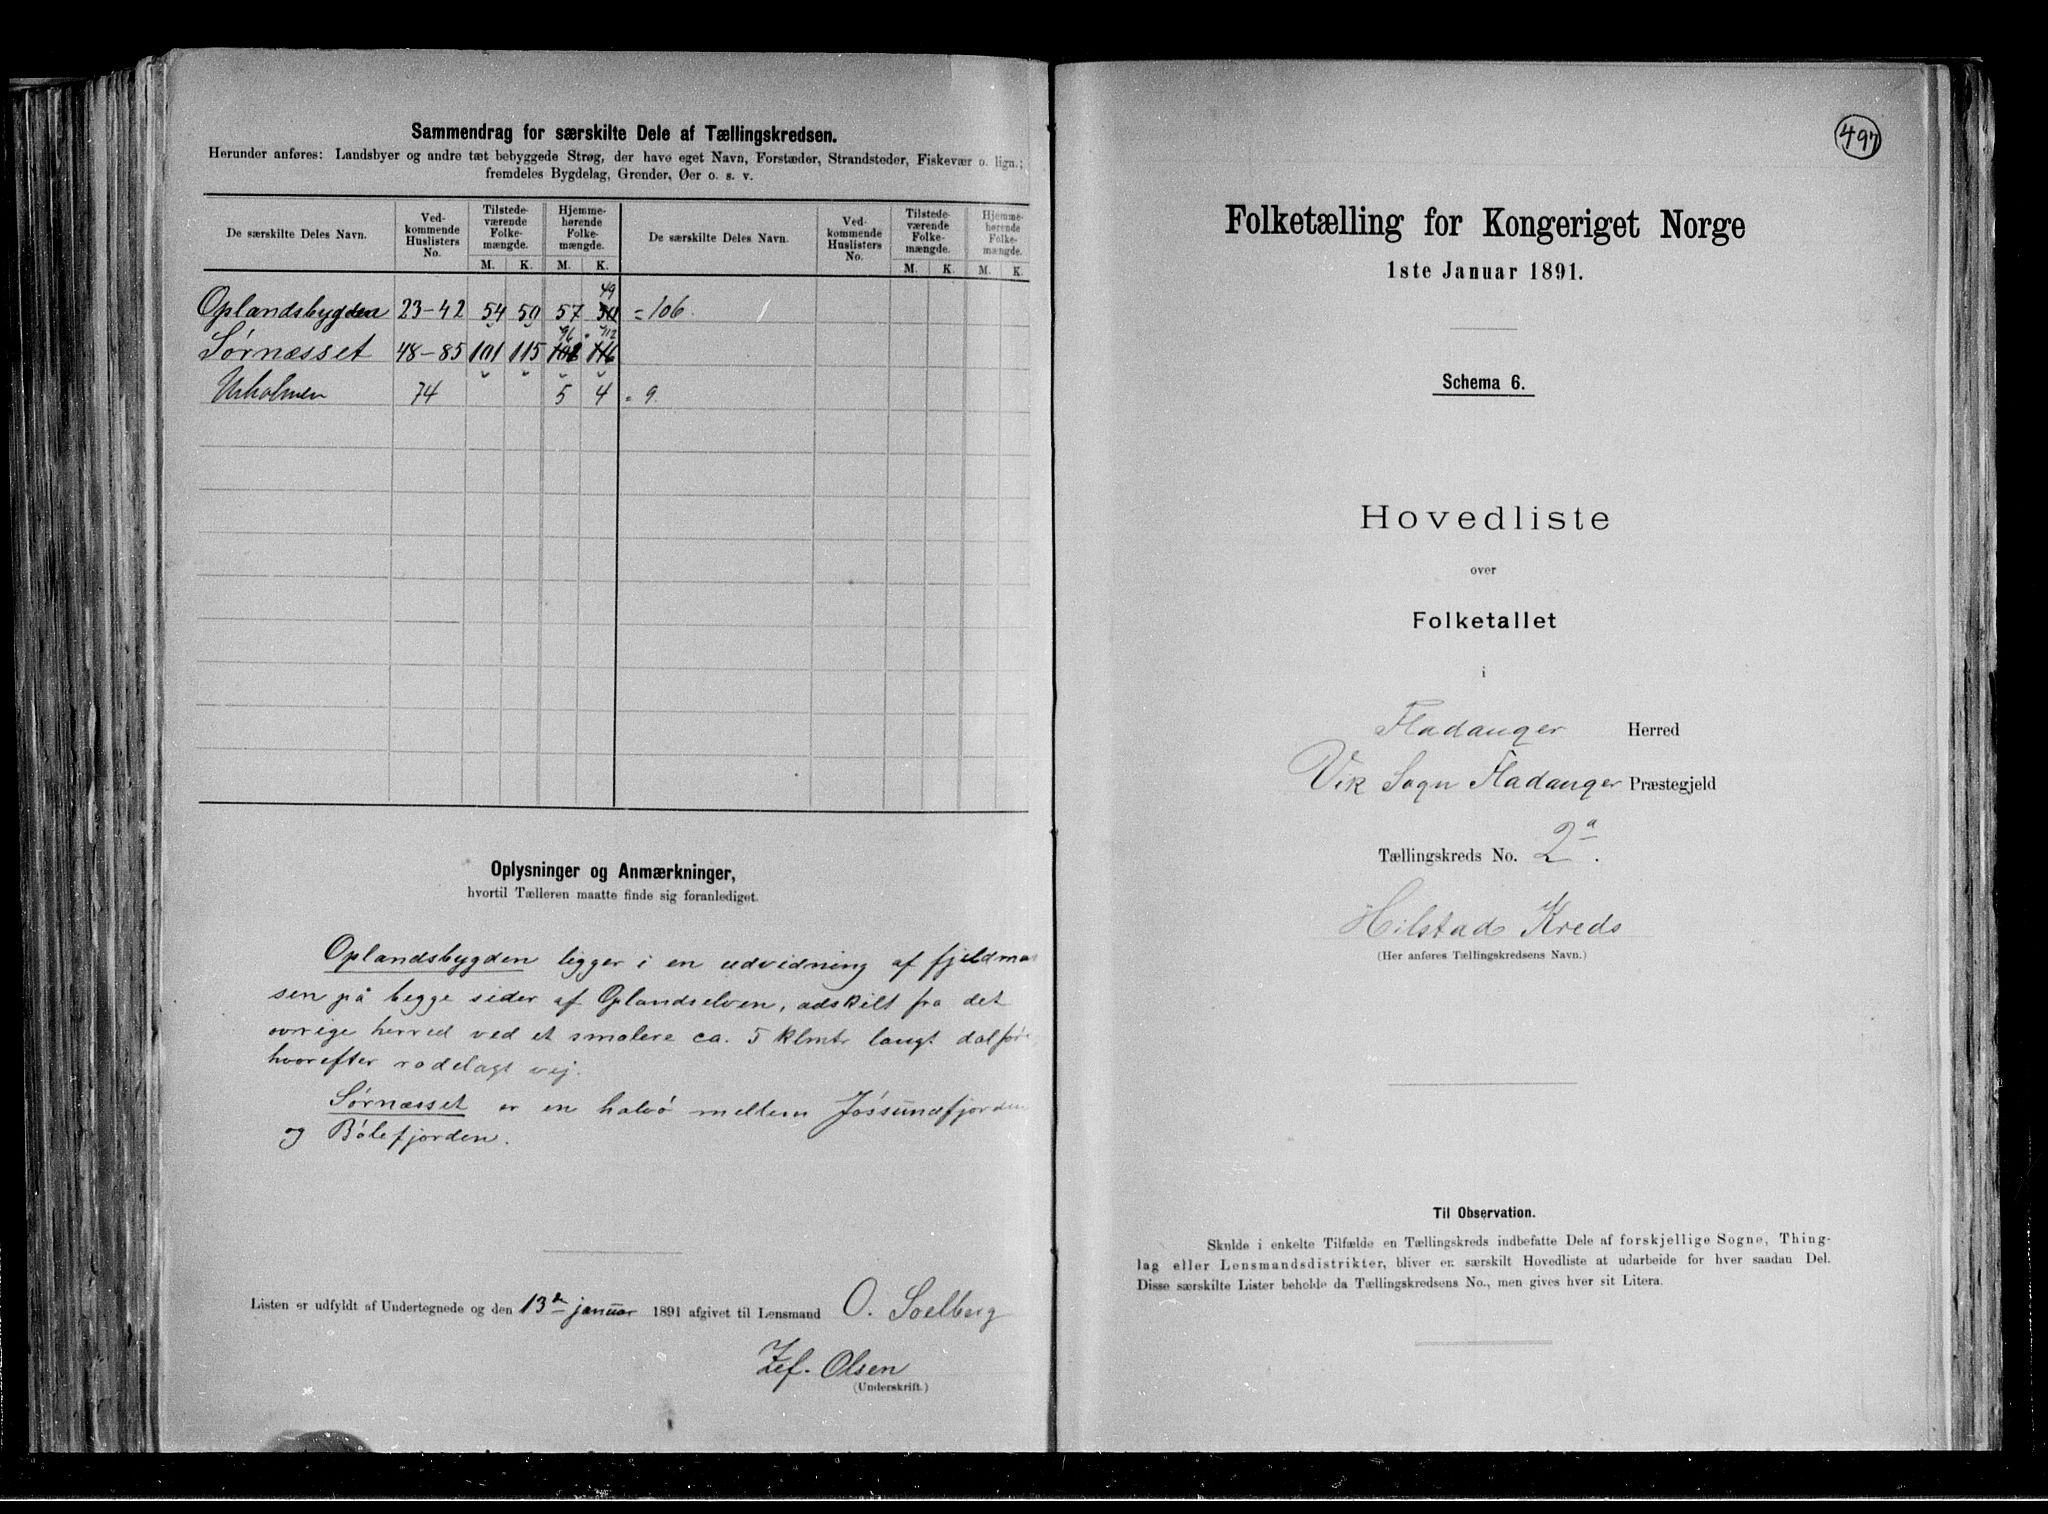 Sammendrag for særskilte Dele af Tællingskredsen.
Herunder anføres: Landsbyer og andre tæt bebyggede Strøg, der have eget Navn, Forstæder, Strandsteder, Fiskevær o. lign.;
fremdeles Bygdelag, Grender, Øer o. s. v.
De særskilte Deles Navn. Ved-kommende Huslisters No. Tilstede-værende Folke-mængde. Hjemme-hørende Folke-mængde. De særskilte Deles Navn. Ved-kommende Huslisters No. Tilstede-værende Folke-mængde. Hjemme-hørende Folke-mængde.
M. K. M. K. M. K. M. K.
49
Oplandsbygden 23-42 54 50 57 = 106.
96 112
Sørnæsset 48-85 101 115 116
74 5 4 = 9.
Oplysninger og Anmærkninger,
hvortil Tælleren maatte finde sig foranlediget.
Oplandsbygden ligger i en udvidning af
sen på begge sider af Oplandselven, adskilt fra det
øvrige herred ved et smalere ca. 5 klmtr langt
hvorefter rodelagt vej.
Sørnæsset er en halvö mellem Jössundfjorden
og Bölefjorden.
Listen er udfyldt af Undertegnede og den 13de januar 1891 afgivet til Lensmand O. Soelberg
Zef. Olsen
(Underskrift.)
497
Folketælling for Kongeriget Norge
1ste Januar 1891.
Schema 6.
Hovedliste
over
Folketallet
i
Fladanger Herred
Vik Sogn Fladanger Præstegjeld
Tællingskreds No. 2a.
Hilstad Kreds
(Her anføres Tællingskredsens Navn.)
Til Observation.
Skulde i enkelte Tilfælde en Tællingskreds indbefatte Dele af forskjellige Sogne, Thing-
lag eller Lensmandsdistrikter, bliver en særskilt Hovedliste at udarbeide for hver saadan Del.
Disse særskilte Lister beholde da Tællingskredsens No., men gives hver sit Litera.